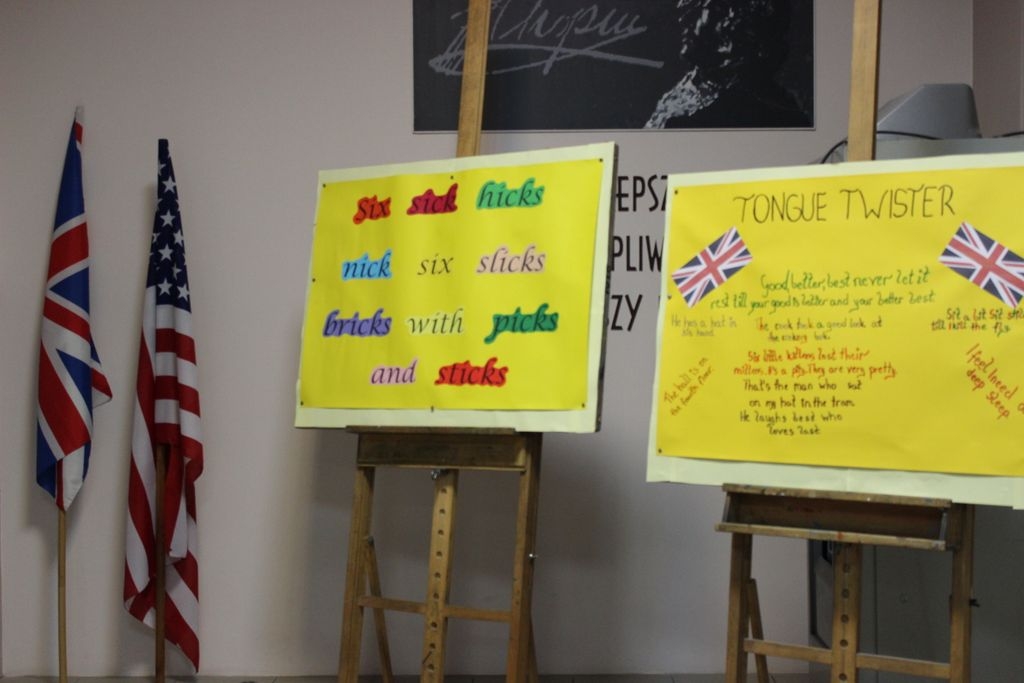 Chopin
EPSZ
PLIW
ZY
Six sick hicks
nick six slicks
bricks with picks
and sticks
TONGUE TWISTER
Good, better, best never let it
rest till your good is better and your better best
He has a hat in
his hand.
The cook took a good look at
the cooking book.
Sit a bit Sit still
till I kill the fly
Six little kittens lost their
mittens. It's a pity. They are very pretty.
The ball is on
the fourth floor.
I feel I need a
deep sleep
That's the man who sat
on my hat in the tram
He laughs best who
loves last